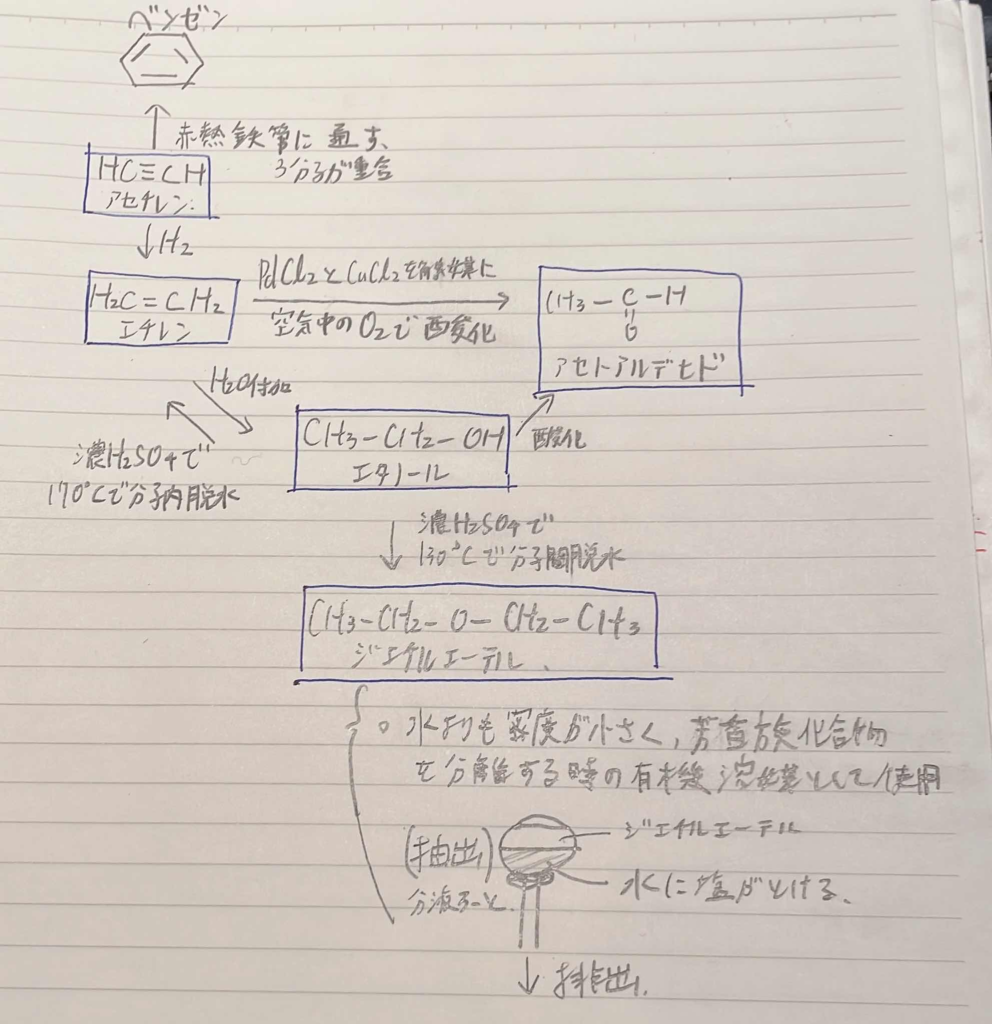 ベンゼン
赤熱鉄管に通す、
3分子が重合
HC≡CH
アセチレン.
H2
H2C=CH2
エチレン
PdCl2とCuCl2を触媒に
空気中のO2で酸化
CH3-C-H
O
アセトアルデヒド
H2O付加
濃H2SO4で
170°Cで分子内脱水
CH3-CH2-OH
エタノール
酸化
濃H2SO4で
130°Cで分子間脱水
CH3-CH2-O-CH2-CH3
ジエチルエーテル、
○水よりも密度が小さく,芳香族化合物
を分離する時の有機溶媒として使用
(抽出)
分液ろーと.
ジエチルエーテル
水に塩がとける、
排出.